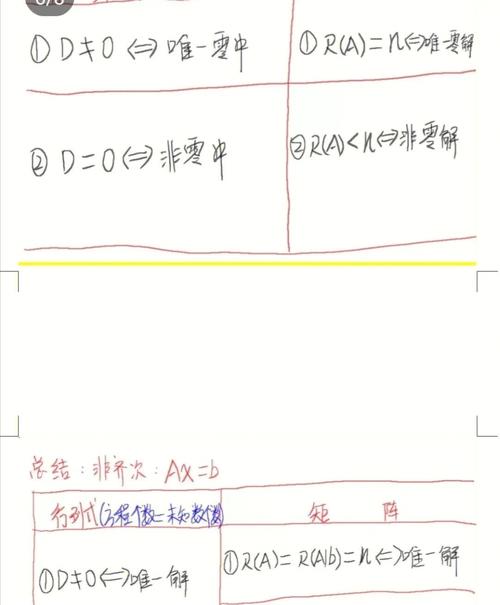 6/6
① D≠0 ⇔ 唯一零中
① R(A)=n⇔唯一零解
② D=0⇔非零中
② R(A)<n⇔非零解
总结：非齐次：Ax=b
行列式(方程个数=未知数个数)
矩 阵
① D≠0⇔唯一解
① R(A)=R(A|b)=n⇔唯一解